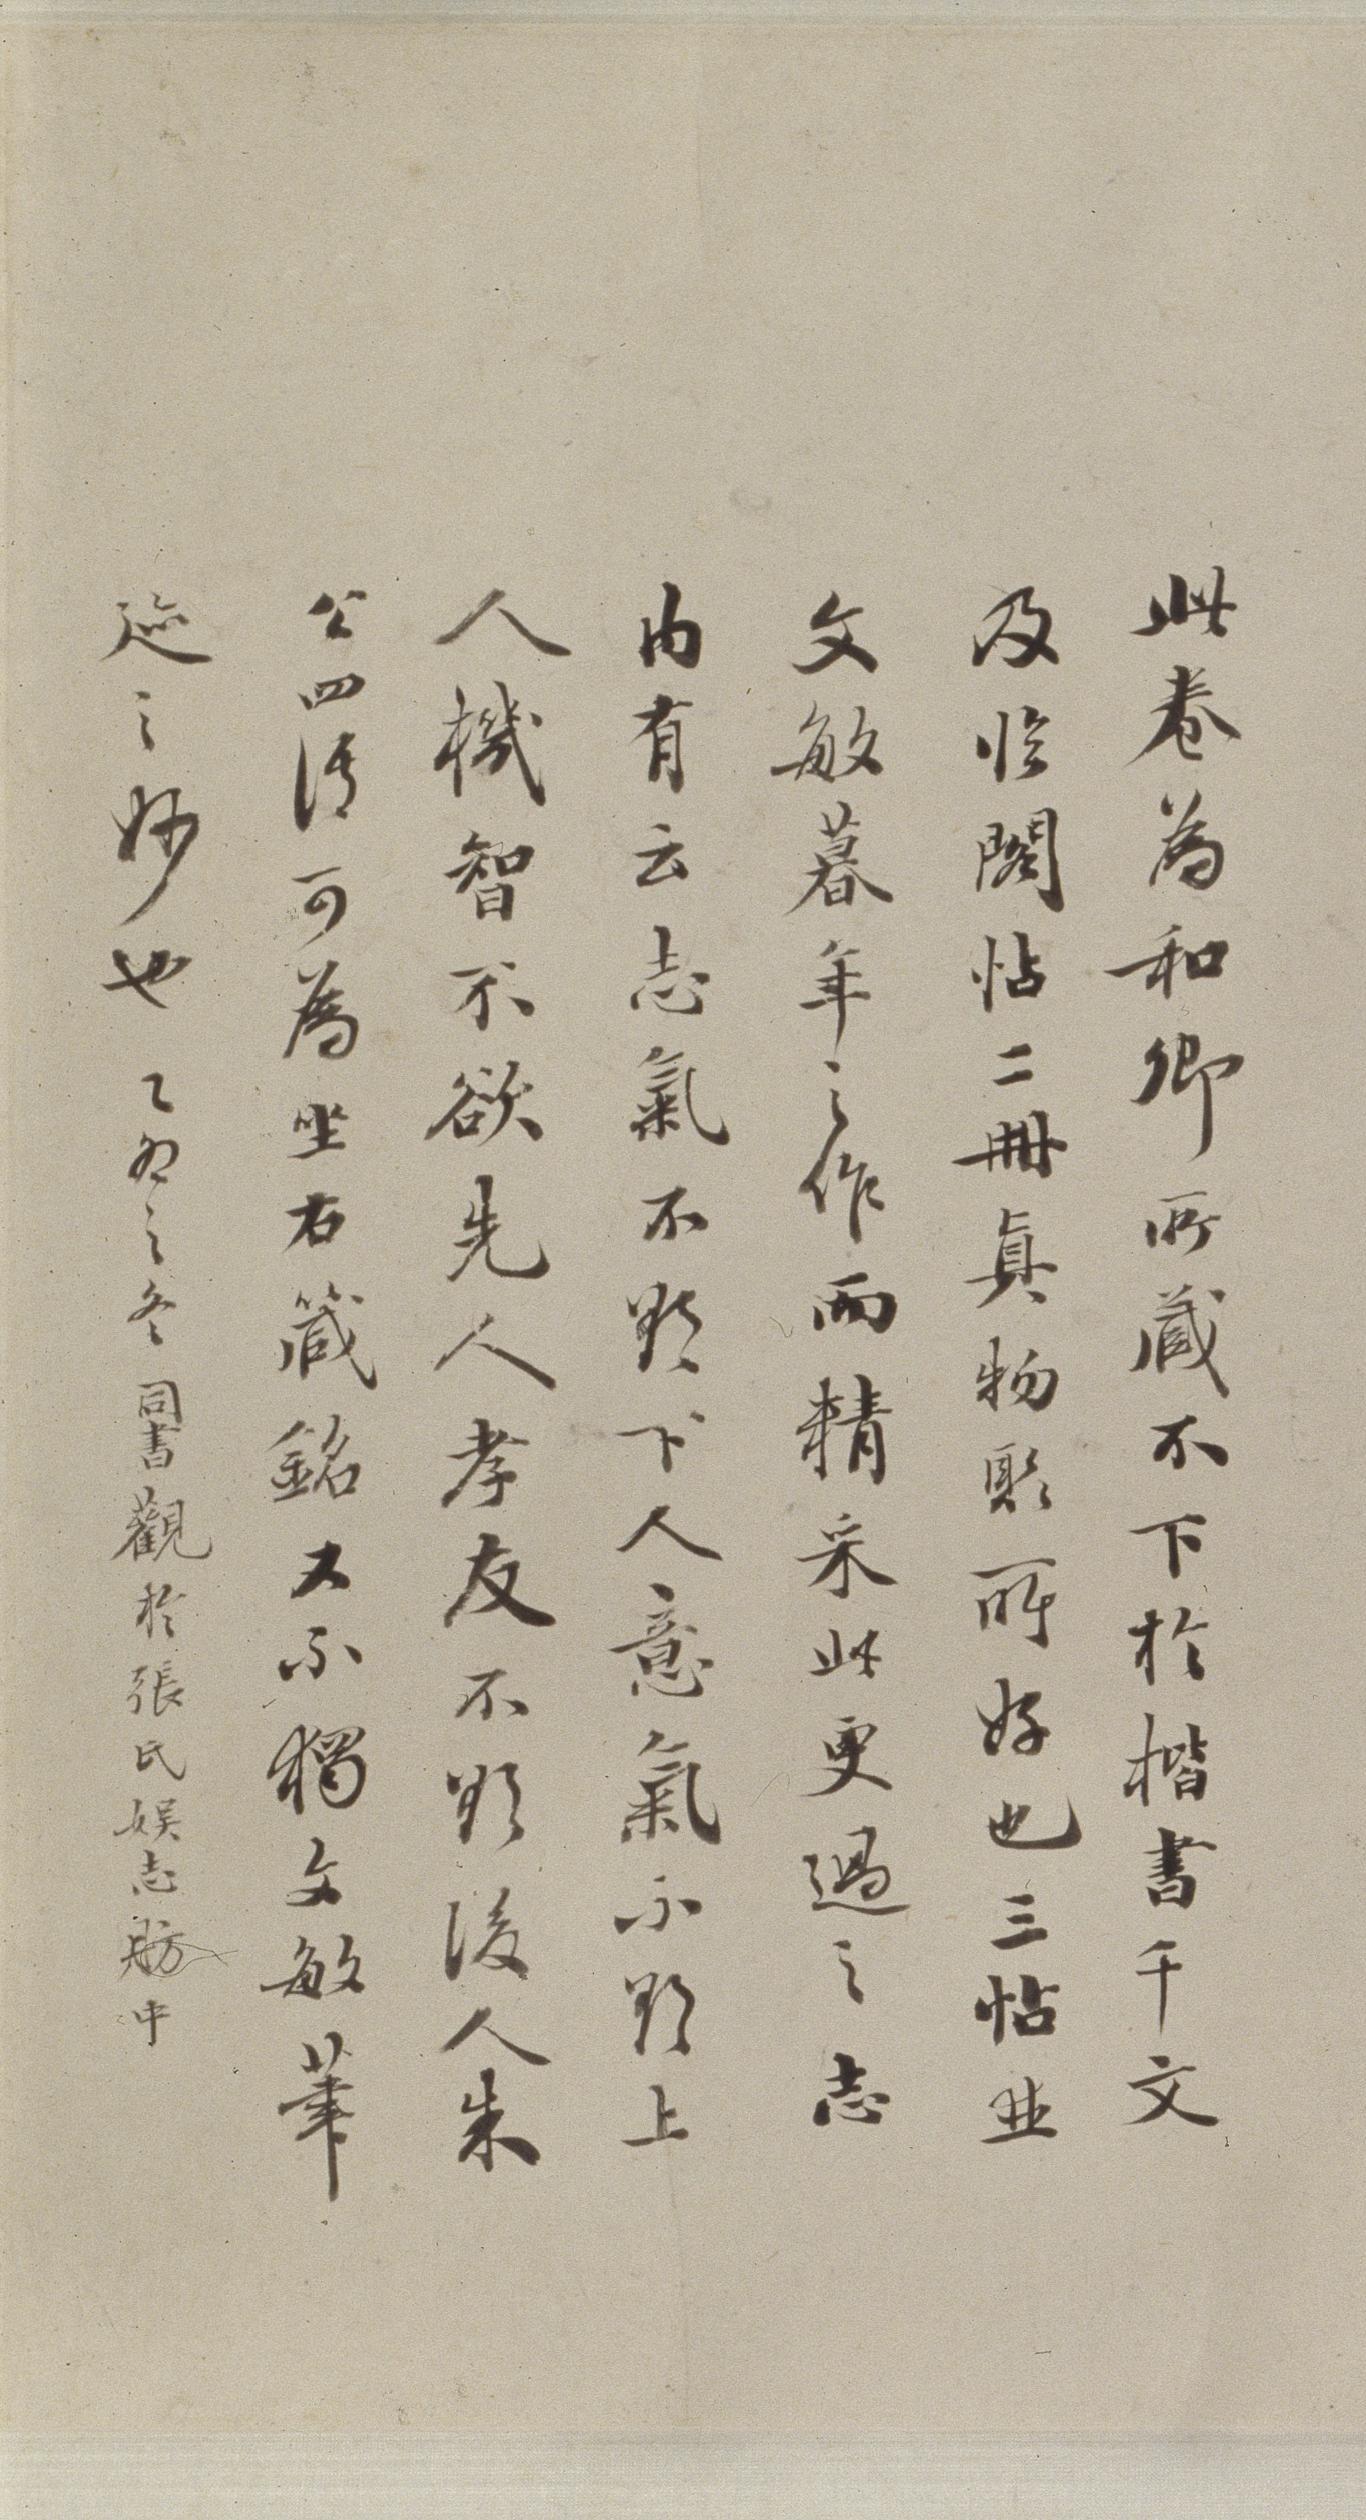 此卷為和卿所藏不下於楷書千文
及临閣帖二冊真物聚所好也三帖並
文敏暮年之作而精采此更過之志
内有云志氣不欺下人意氣不欺上
人機智不欲先人孝友不欺後人朱
公四語可為坐右箴銘又不獨文敏筆
迹之妙也 乙卯之冬同書觀於張氏娱志舫中